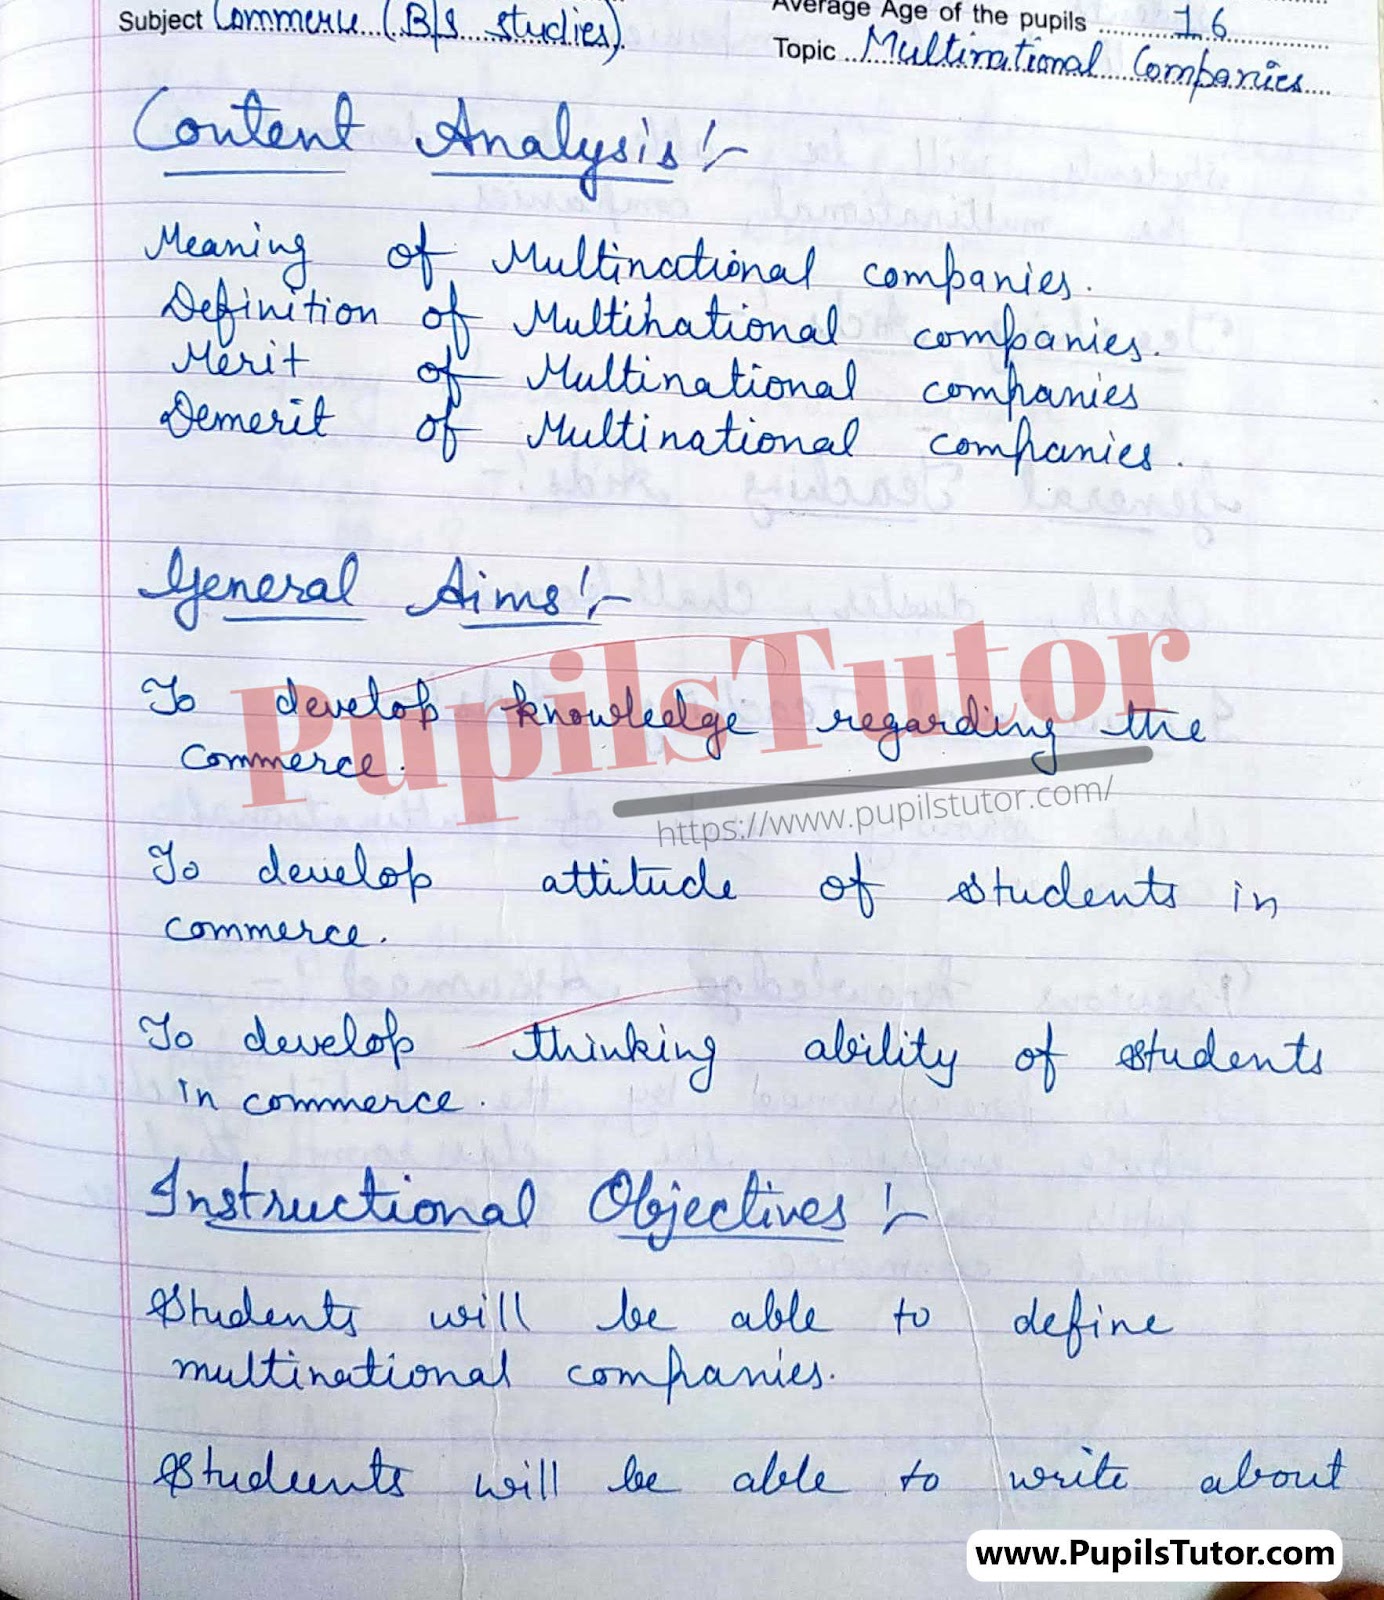 Subject Commerce (B/S studies)
Average Age of the pupils 16
Topic Multinational Companies
Content Analysis :-
Meaning of Multinational companies.
Definition of Multinational companies.
Merit of Multinational companies
Demerit of Multinational companies.
General Aims :-
To develop knowledge regarding the
commerce.
PupilsTutor
https://www.pupilstutor.com/
To develop attitude of students in
commerce.
To develop thinking ability of students
in commerce.
Instructional Objectives :-
Students will be able to define
multinational companies.
Students will be able to write about
www.PupilsTutor.com